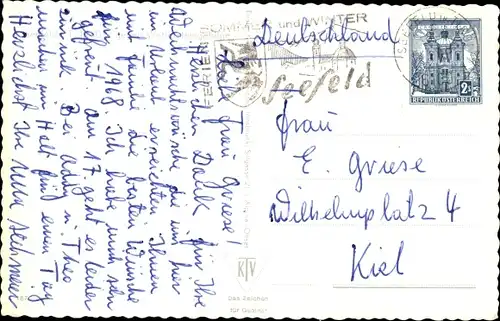 Liebe Frau Griese!
Herzlichen Dank für Ihre
Weihnachtswünsche die uns hier
im Urlaub erreichten. Ihnen
und Familie die besten Wünsche
für 1968. Ich habe mich sehr
gefreut. Am 17. geht es leider
zurück. Bei
machen wir Halt für einen Tag
Herzlichst Ihre
SOMMER und WINTER
FERIEN
Seefeld
Deutschland
REPUBLIK ÖSTERREICH
2
Frau
E. Griese
Wilhelmplatz 4
Kiel
KTV
Das Zeichen
für Qualität